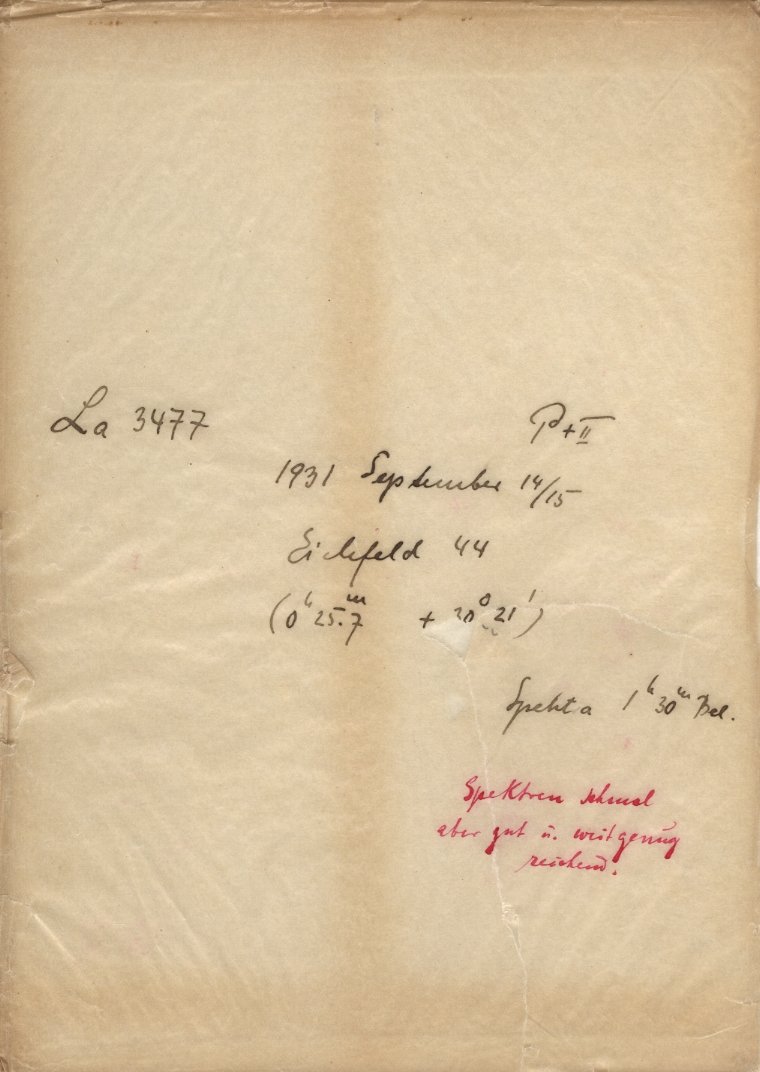 La 3477 P + II
1931 September 14/15
Eichfeld 44
(0ʰ 25.ᵐ7 + 30° 21')
Spektra 1ʰ 30ᵐ Bel.
Spektren schmal
aber gut u. weit genug
reichend.